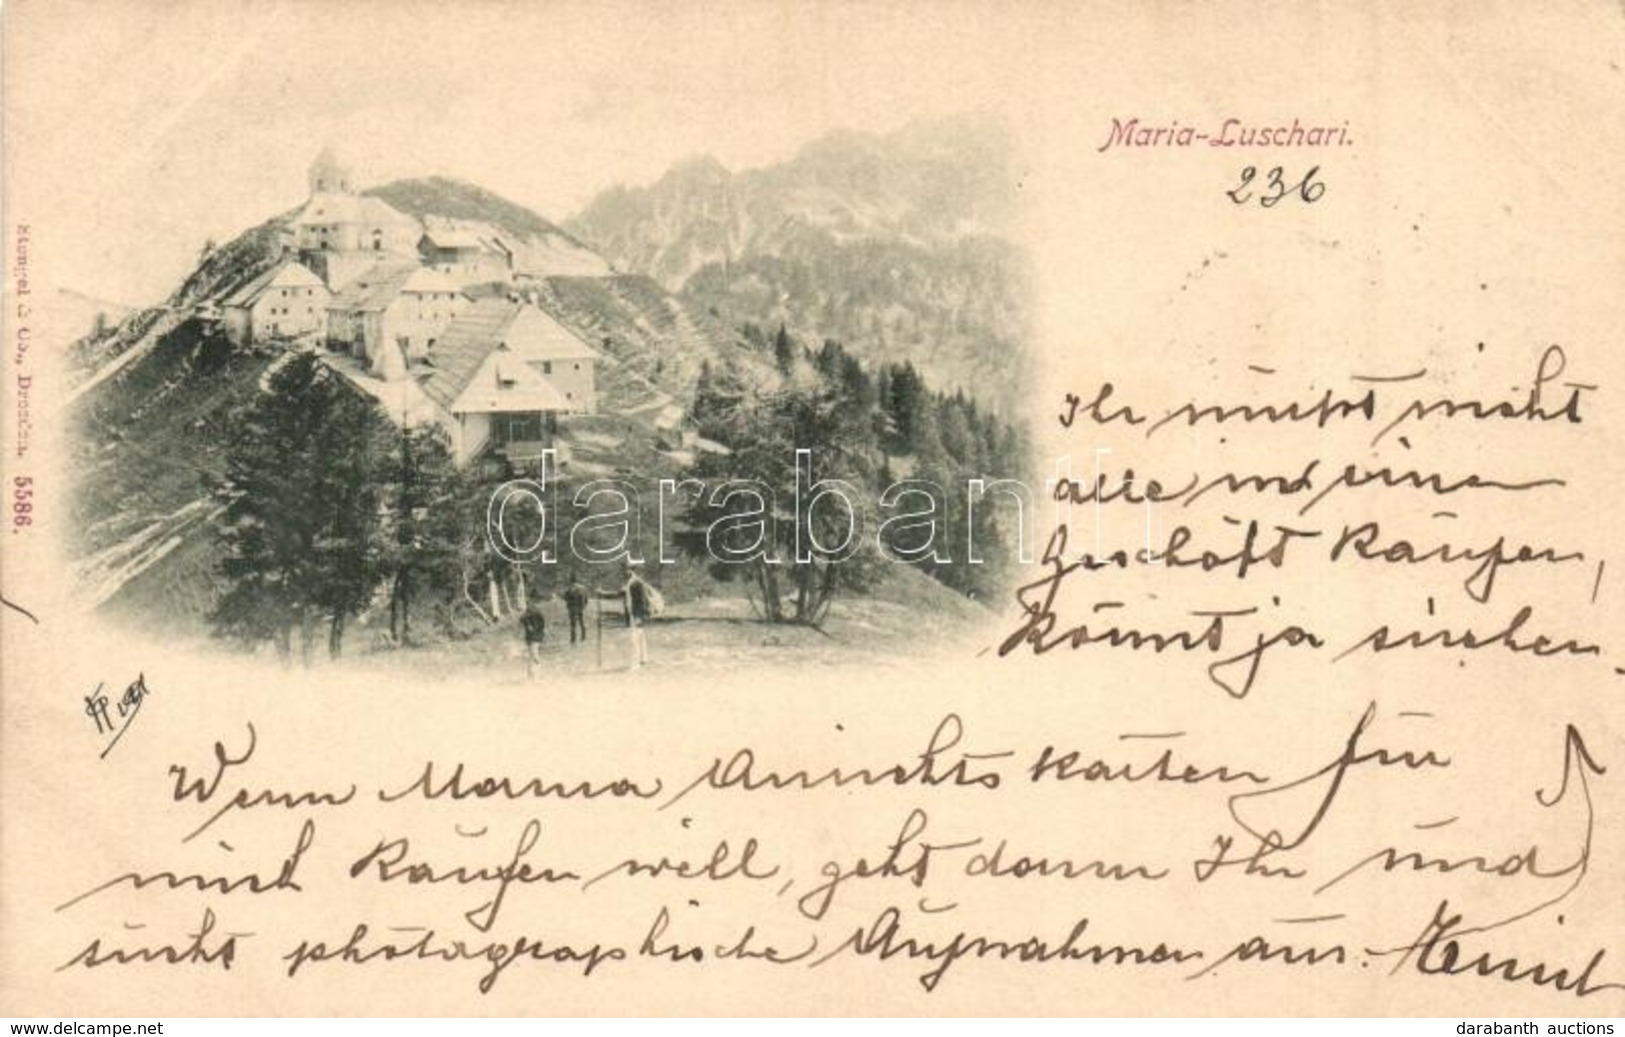 Maria-Luschari.
236
Stengel & Co., Dresden. 5586.
Ihr müßt nicht
alle in einem
Geschäft kaufen,
könnt ja suchen.
Wenn Mama Ansichtskarten für
mich kaufen will, geht dann Ihr und
sucht photographische Aufnahmen aus.
darabanth
www.delcampe.net
darabanth auctions